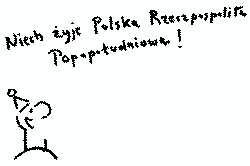 Niech żyje Polska Rzeczpospolita
Popopołudniowa !